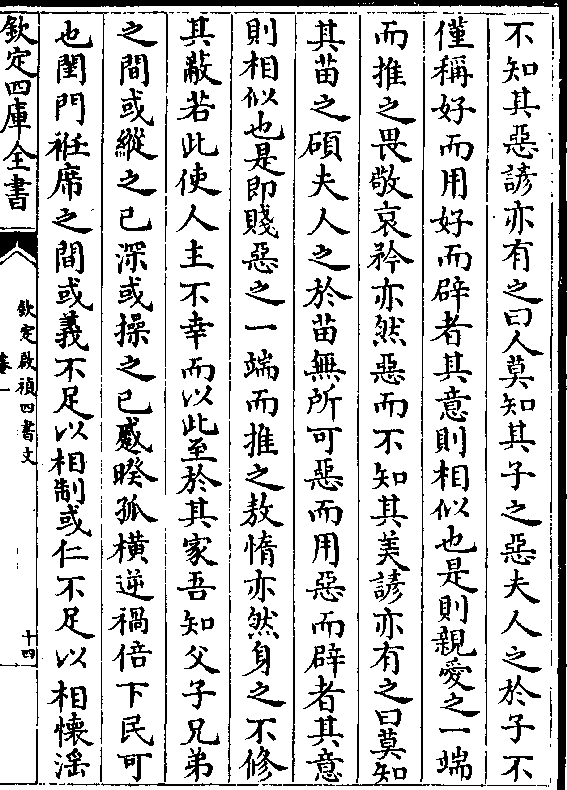 不知其惡諺亦有之曰人莫知其子之惡夫人之於子不
僅稱好而用好而辟者其意則相似也是則親愛之一端
而推之畏敬哀矜亦然惡而不知其美諺亦有之曰莫知
其苗之碩夫人之於苗無所可惡而用惡而辟者其意
則相似也是即賤惡之一端而推之敖惰亦然身之不修
其敝若此使人主不幸而以此至於其家吾知父子兄弟
之間或縱之已深或操之已蹙暌孤橫逆禍倍下民可
也閨門袵席之間或義不足以相制或仁不足以相懷淫
欽定四庫全書
欽定啟禎四書文
卷一
十四